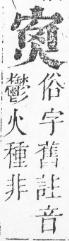 俗字舊註音
鬱火種非